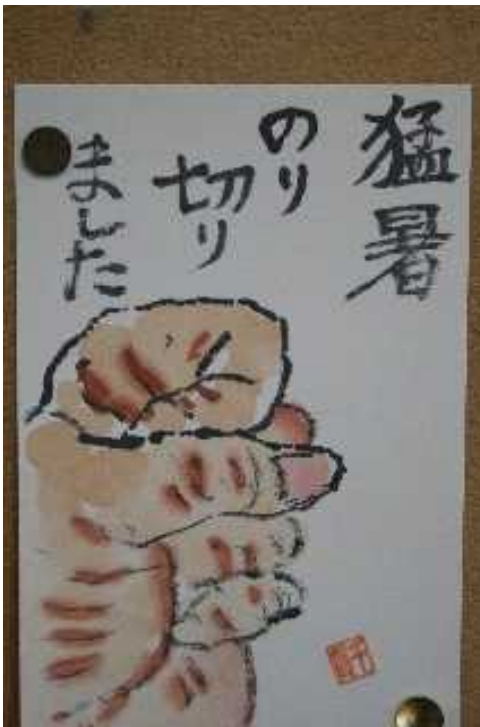 猛暑
のり
切り
ました